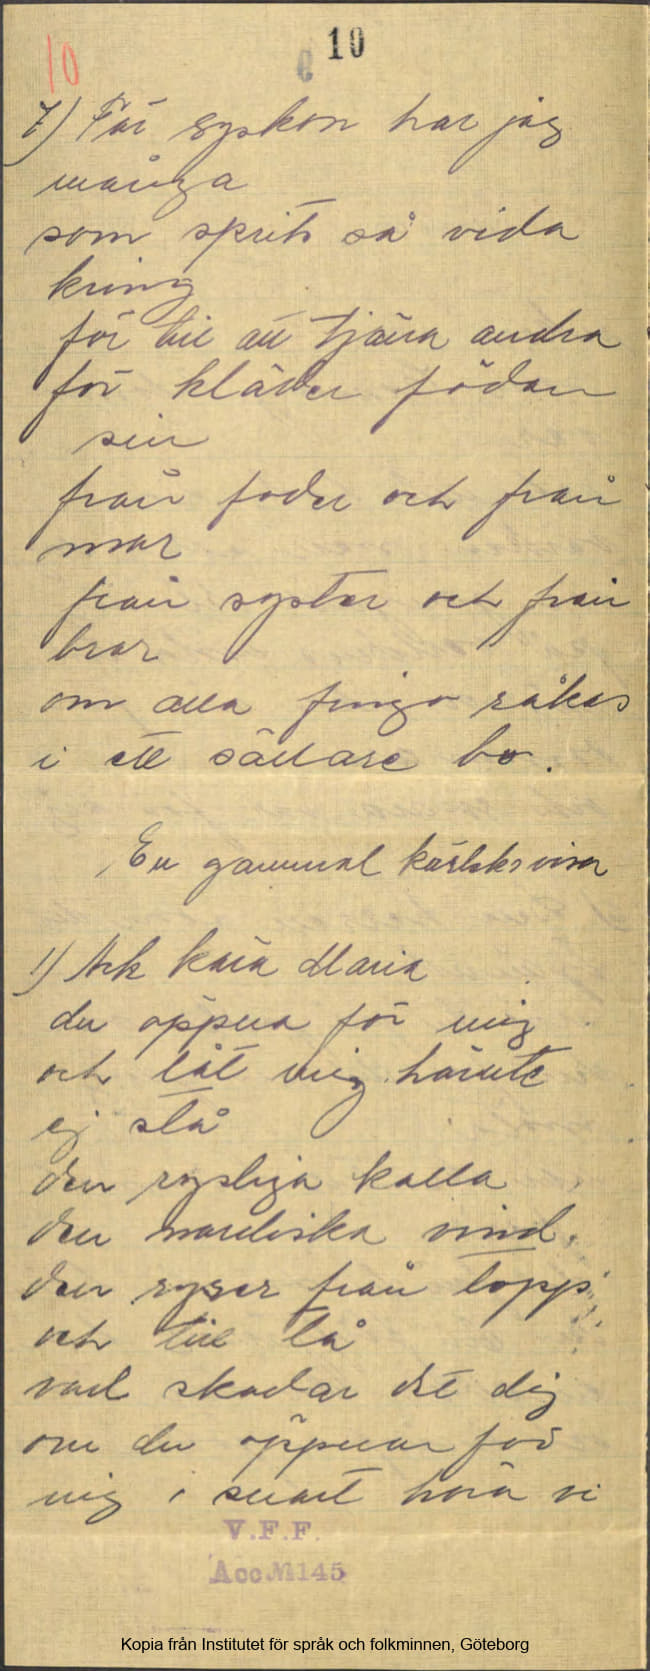 10
10
7) Får syskon har jag
många
som sprits så vida
kring
för till att tjäna andra
för kläder födan
sin
från foder och från
mor
från syster och från
bror
om alla fingo råkas
i ett sällare bo.
En gammal kärleksvisa
1) Ack kära Maria
du öppna för mig
och låt mig härute
ej stå
den rysliga kalla
den nordiska vind.
den ryser från topp
och till tå
vad skadar det dig
om du öppnar för
mig i snart höra vi
V.F.F.
Acc. N 145
Kopia från Institutet för språk och folkminnen, Göteborg